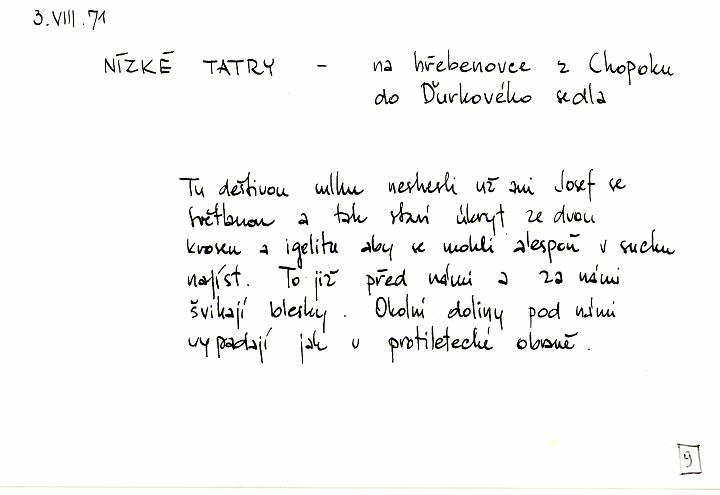 3.VIII.71
NÍZKÉ TATRY - na hřebenovce z Chopoku
do Ďurkového sedla
Tu deštivou mlhu nesnesli už ani Josef se
Květanou a tak staví úkryt ze dvou
krosen a igelitu aby se mohli alespoň v suchu
najíst. To již před námi a za námi
švihají blesky. Okolní doliny pod námi
vypadají jak v protiletecké obraně.
9